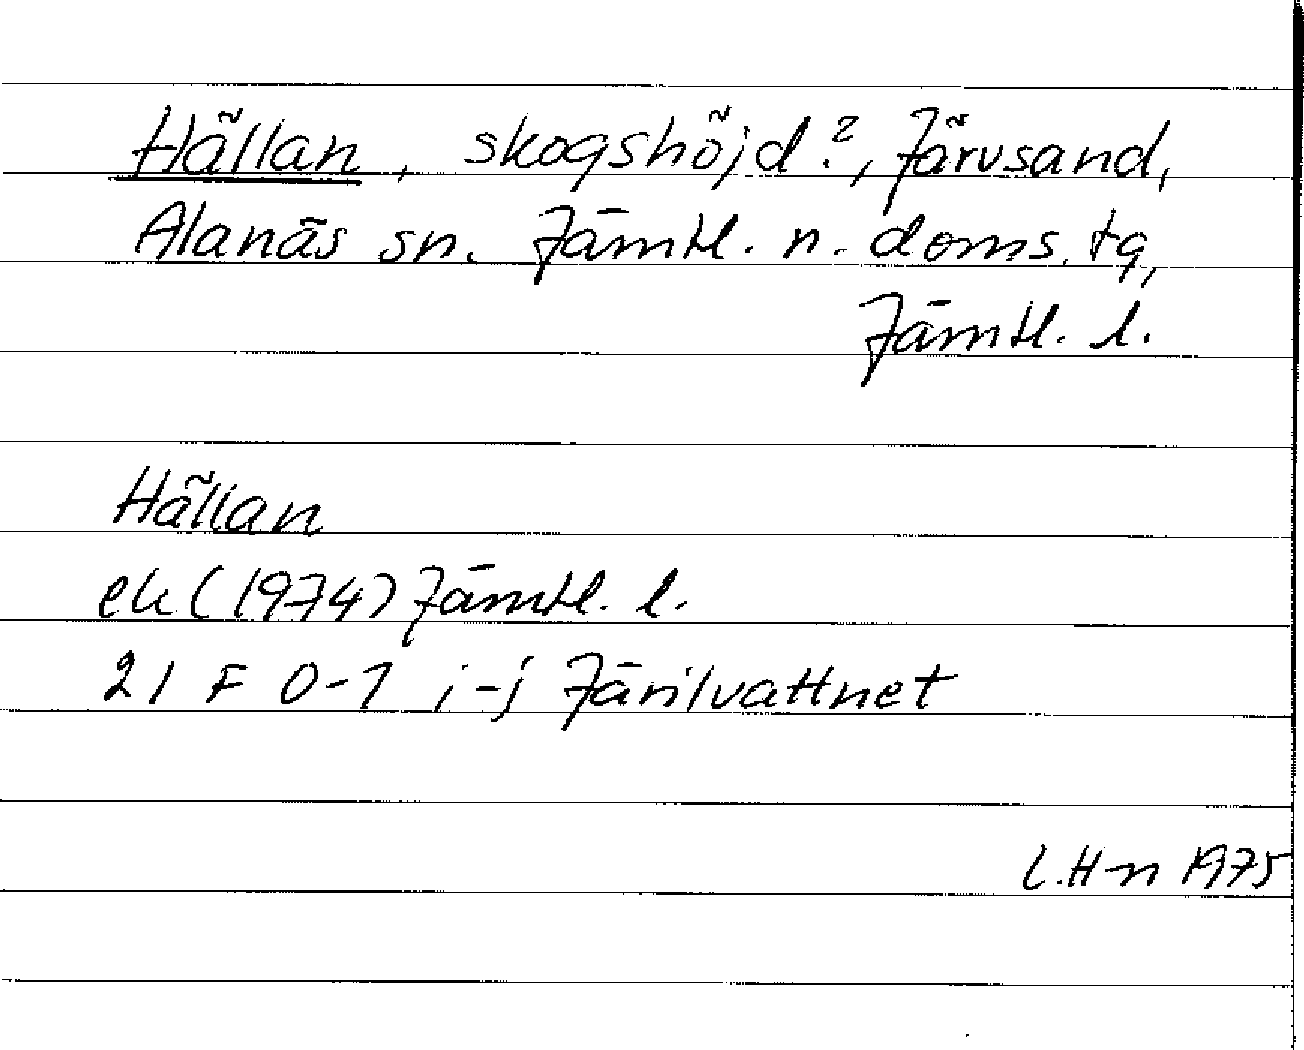 Hällan, skogshöjd?, Järvsand,
Alanäs sn. Jämtl. n. doms. tg,
Jämtl. l.
Hällan
ek (1974) Jämtl. l.
21 F 0-1 i-j Järilvattnet
L.H-n 1975